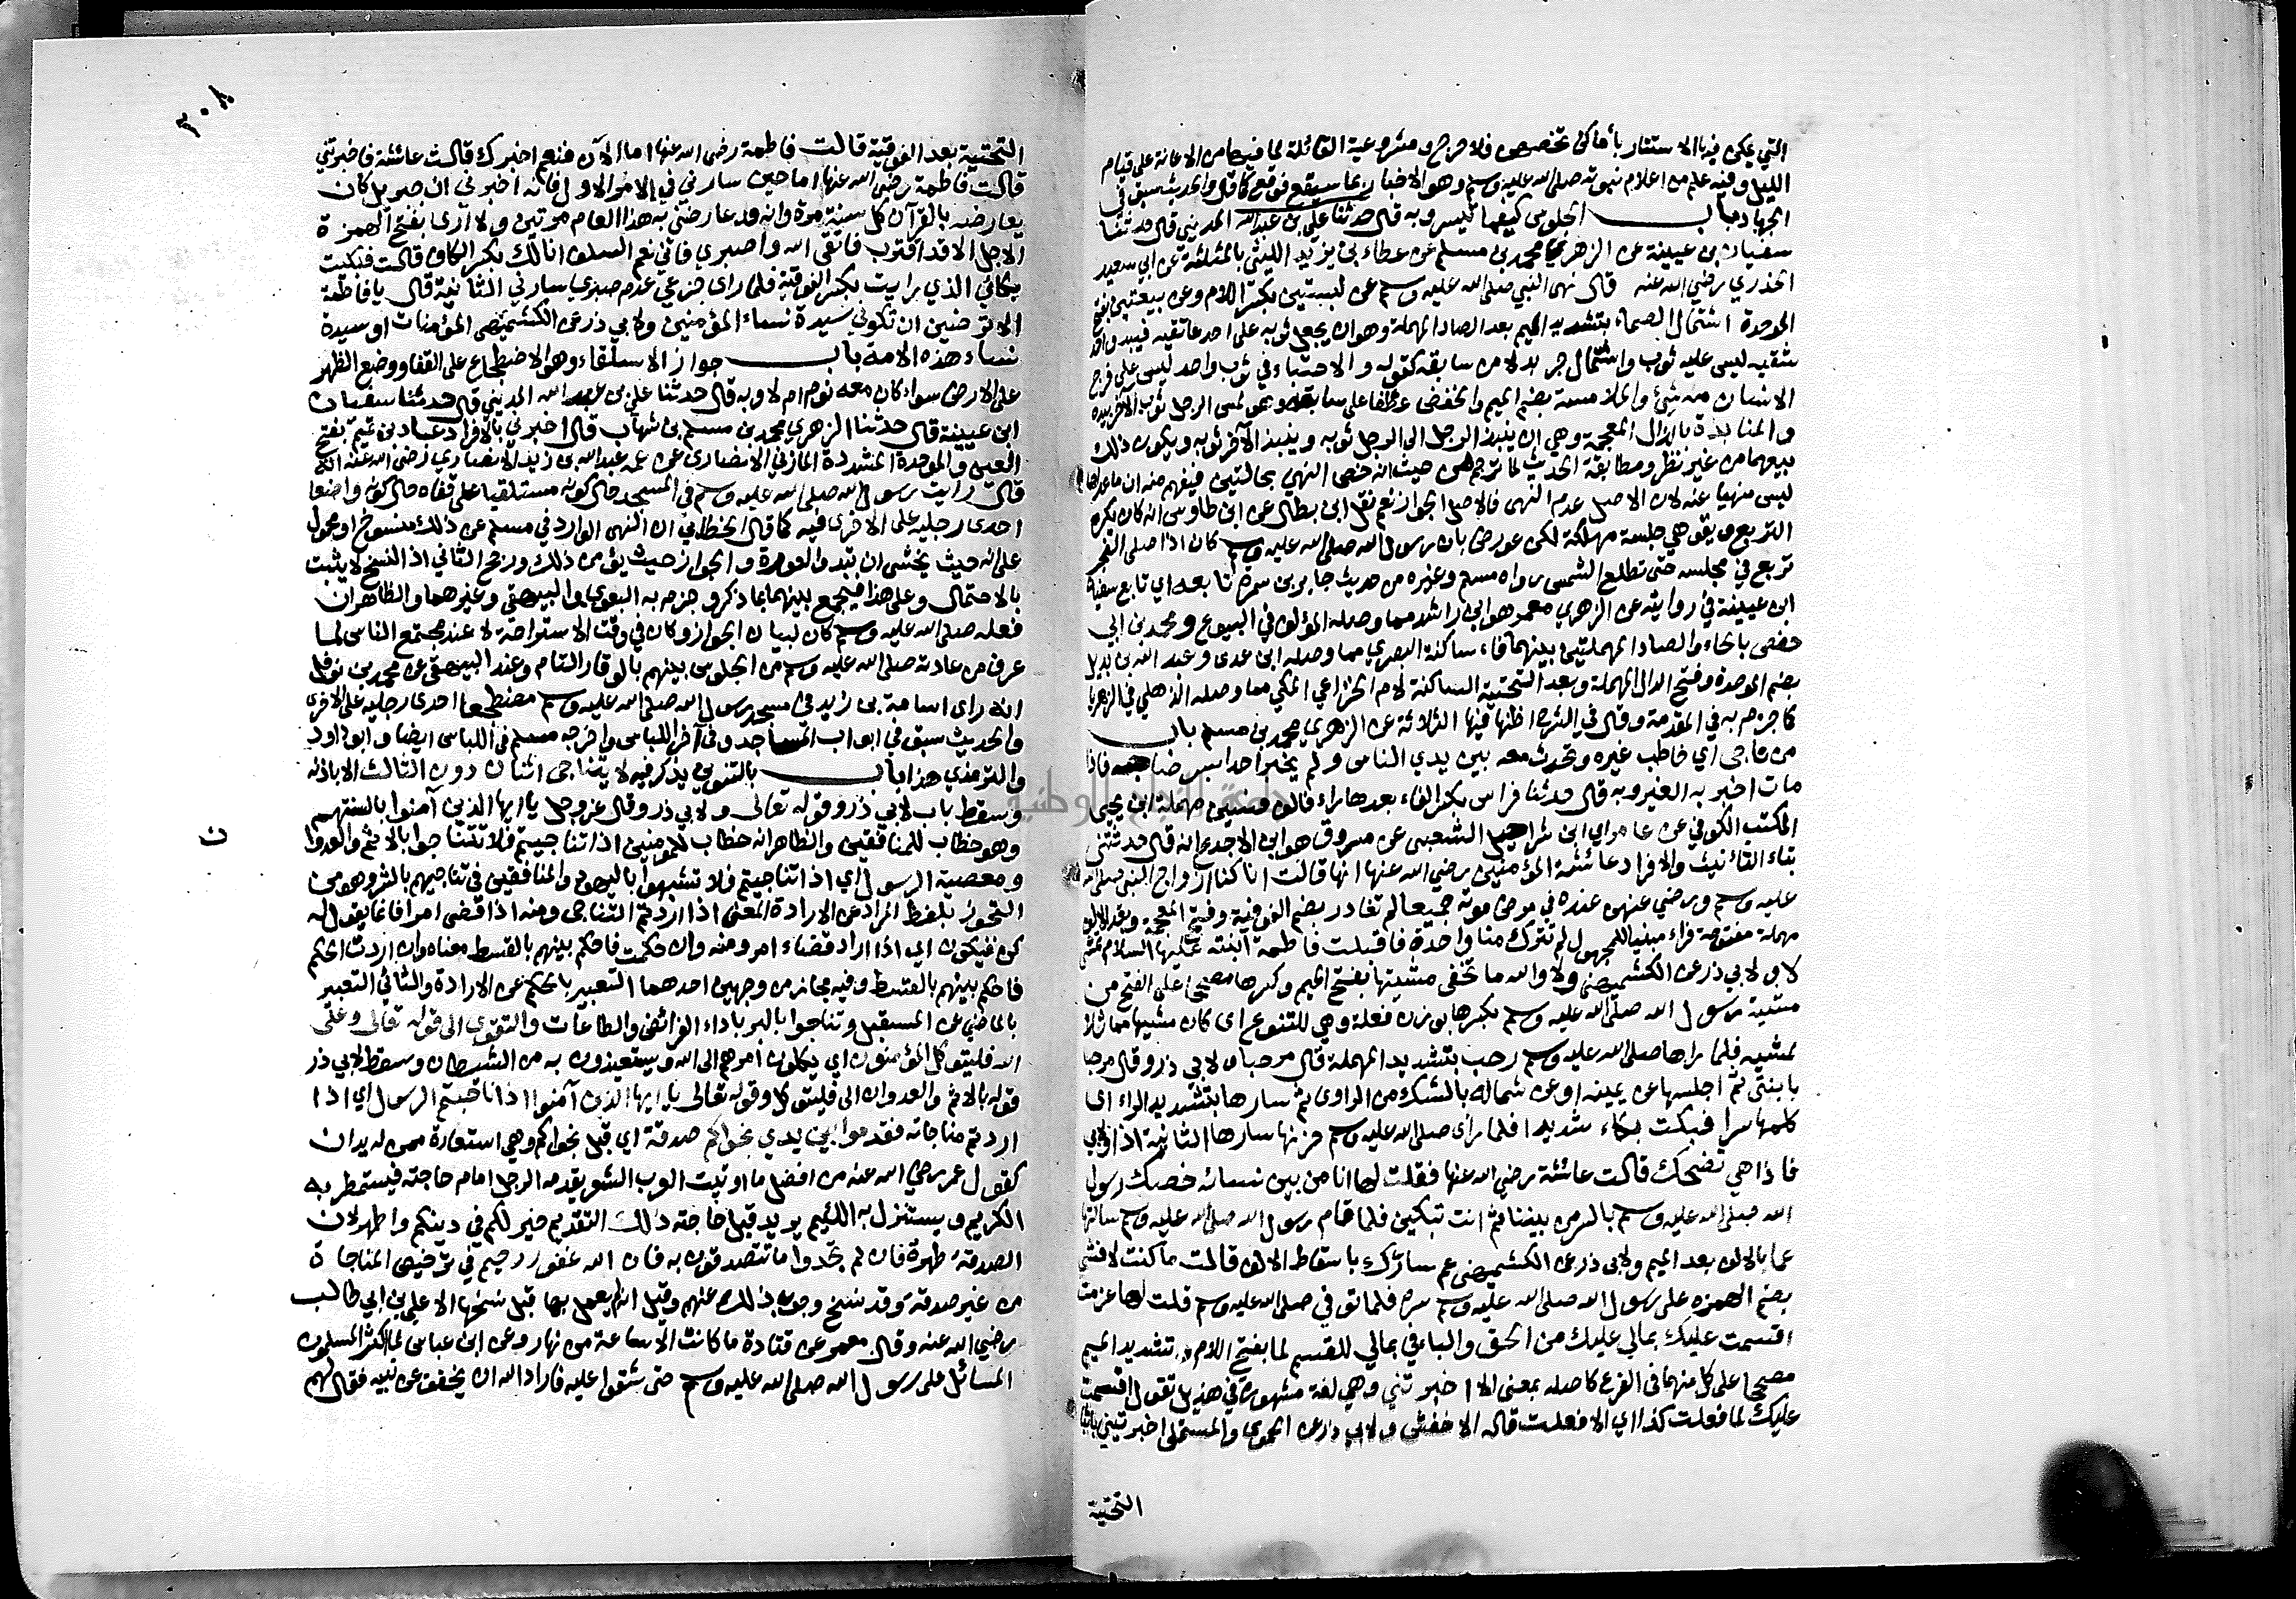 التي يمكن فيها الاستتار بأماكن تخصهن فلا حرج ومشروعية القائلة لما فيها من الاعانة على قيام
الليل وفيه علم من اعلام نبوته صلى الله عليه وسلم وهو الاخبار بما سيقع فوقع كما قال والحديث سبق في
الجهاد باب الجلوس كيفما تيسر وبه قال حدثنا علي بن عبد الله المديني قال حدثنا
سفيان بن عيينة عن الزهري محمد بن مسلم عن عطاء بن يزيد الليثي بالمثلثة عن ابي سعيد
الخدري رضي الله عنه قال نهى النبي صلى الله عليه وسلم عن لبستين بكسر اللام وعن بيعتين بفتح
الموحدة اشتمال الصماء بتشديد الميم بعد الصاد المهملة وهو ان يجعل ثوبه على احد عاتقيه فيبدو احد
شقيه ليس عليه ثوب واشتمال جر بدلا من سابقه كقوله والاحتباء في ثوب واحد ليس على فرج
الانسان منه شئ والملامسة بضم الميم والخفض عطفا على سابقه وهو لمس الرجل ثوب الاخر بيده
والمنابذة بالذال المعجمة وهي ان ينبذ الرجل الى الرجل ثوبه وينبذ الآخر ثوبه ويكون ذلك
بيعهما من غير نظر ومطابقة الحديث لما ترجم من حيث انه خص النهي بحالتين فيفهم منه ان ما عداهما
ليس منهيا عنه لان الاصل عدم النهى فالاصل الجواز نعم نقل ابن بطال عن ابن طاوس انه كان يكره
التربع ويقول هي جلسة مهلكة لكن عورض بان رسول الله صلى الله عليه وسلم كان اذا صلى الفجر
تربع في مجلسه حتى تطلع الشمس رواه مسلم وغيره من حديث جابر بن سمرة تابعه اي تابع سفيان
ابن عيينة في روايته عن الزهري معمر هو ابن راشد مما وصله المؤلف في البيوع ومحمد بن ابي
حفص بالحاء والصاد المهملتين بينهما فاء ساكنة البصري مما وصله ابن عدى وعبد الله بن بديل
بضم الموحدة وفتح الدال المهملة وبعد التحتية الساكنة لام الخزاعي المكي مما وصله الذهلي في الزهريات
كما جزم به في المقدمة وقال في الشرح اظنها فيها الثلاثة عن الزهري محمد بن مسلم باب
من ناجى اي خاطب غيره وتحدث معه بين يدي الناس ولم يخبر احدا بسر صاحبه فاذا
مات اخبر به الغير وبه قال حدثنا فراس بكسر الفاء بعدها راء فالف فسين مهملة ابن يحيى
المكتب الكوفي عن عامر اي ابن شراحيل الشعبي عن مسروق هو ابن الاجدع انه قال حدثتني
بتاء التانيث والافراد عائشة ام المؤمنين رضي الله عنها انها قالت انا كنا ازواج النبي صلى الله
عليه وسلم ورضي عنهن عنده في مرض موته جميعا لم تغادر بضم الفوقية وفتح المعجمة وبعد الالف
مهملة مفتوحة فراء مبنيا للمجهول لم تترك منا واحدة فاقبلت فاطمة ابنته عليها السلام تمشى
لا ولابي ذر عن الكشميهني ولا والله ما تخفى مشيتها بفتح الميم وكسرها مصححا على الفتح من
مشية رسول الله صلى الله عليه وسلم بكسرها بوزن فعلة وهي للتنوع اى كان مشيها مماثلا
لمشيه فلما راها صلى الله عليه وسلم رحب بتشديد المهملة قال مرحبا ولابي ذر وقال مرحبا
بابنتى ثم اجلسها عن يمينه او عن شماله بالشك من الراوى ثم سارها بتشديد الراء اى
كلمها سرا فبكت بكاء شديدا فلما راى صلى الله عليه وسلم حزنها سارها الثانية اذا ولابي
فاذا هي تضحك قالت عائشة رضي الله عنها فقلت لها انا من بين نسائه خصك رسول
الله صلى الله عليه وسلم بالسر من بيننا ثم انت تبكين فلما قام رسول الله صلى الله عليه وسلم سالتها
عما بالالف بعد الميم ولابى ذر عن الكشميهني عم سارك باسقاط الالف قالت ما كنت لافشى
بضم الهمزه على رسول الله صلى الله عليه وسلم سره فلما توفي صلى الله عليه وسلم قلت لها عزمت
اقسمت عليك بمالي عليك من الحق والباء في بمالي للقسم لما بفتح اللام وتشديد الميم
مصححا على كل منهما في الفرع كاصله بمعنى الا اخبرتني وهي لغة مشهورة في هذيل تقول اقسمت
عليك لما فعلت كذا اي الا فعلت قاله الاخفش ولابي ذر عن الحموى والمستملى اخبرتيني باثبات
التحتية
٣٠٨
التحتية بعد الفوقية قالت فاطمة رضى الله عنها اما الآن فنعم اخبرك قالت عائشة فاخبرتني
قالت فاطمة رضي الله عنها اما حين سارني في الامر الاول فانه اخبرني ان جبريل كان
يعارضه بالقرآن كل سنة مرة وانه قد عارضني به هذا العام مرتين ولا ارى بفتح الهمزة
الاجل الا قد اقترب فاتقى الله واصبري فاني نعم السلف انا لك بكسر الكاف قالت فبكيت
بكائي الذي رايت بكسر الفوقية فلما راى جزعي عدم صبري سارني الثانية قال يا فاطمة
الا ترضين ان تكوني سيدة نساء المؤمنين ولابي ذر عن الكشميهني المؤمنات او سيدة
نساء هذه الامة باب جواز الاستلقاء وهو الاضطجاع على القفا ووضع الظهر
على الارض سواء كان معه نوم ام لا وبه قال حدثنا علي بن عبد الله المديني قال حدثنا سفيان
ابن عيينة قال حدثنا الزهري محمد بن مسلم بن شهاب قال اخبرني بالافراد عباد بن تميم بفتح
العين والموحدة المشددة المازني الانصارى عن عمه عبد الله بن زيد الانصاري رضى الله عنه انه
قال رايت رسول الله صلى الله عليه وسلم في المسجد حال كونه مستلقيا على قفاه حال كونه واضعا
احدى رجليه على الاخرى فيه كما قال الخطابي ان النهى الوارد في مسلم عن ذلك منسوخ او محمول
على انه حيث يخشى ان تبدو العورة والجواز حيث يؤمن ذلك ورجح الثاني اذ النسخ لا يثبت
بالاحتمال وعلى هذا فيجمع بينهما بما ذكر وجزم به البغوي والبيهقي وغيرهما والظاهر ان
فعله صلى الله عليه وسلم كان لبيان الجواز وكان في وقت الاستراحة لا عند مجتمع الناس لما
عرف من عادته صلى الله عليه وسلم من الجلوس بينهم بالوقار التام وعند البيهقى عن محمد بن نوفل
انه راى اسامة بن زيد في مسجد رسول الله صلى الله عليه وسلم مضطجعا احدى رجليه على الاخرى
والحديث سبق في ابواب المساجد وفي آخر اللباس واخرجه مسلم في اللباس ايضا وابو داود
والترمذي هذا باب بالتنوين يذكر فيه لا يتناجى اثنان دون الثالث الا باذنه
وسقط باب لابي ذر وقوله تعالى ولابي ذر وقال عز وجل يا ايها الذين آمنوا بالسنتهم
وهو خطاب للمنافقين والظاهر انه خطاب للمومنين اذا تناجيتم فلا تتناجوا بالاثم والعدوان
ن
ومعصية الرسول اي اذا تناجيتم فلا تشبهوا باليهود والمنافقين في تناجيهم بالشر وهو من
التجوز بلفظ المراد عن الارادة المعنى اذا اردتم التناجى ومنه اذا قضى امرا فانما يقول له
كن فيكون اى اذا اراد قضاء امر ومنه وان حكمت فاحكم بينهم بالقسط معناه وان اردت الحكم
فاحكم بينهم بالقسط وفيه مجاز من وجهين احدهما التعبير بالحكم عن الارادة والثاني التعبير
بالماضي عن المستقبل وتناجوا بالبر باداء الفرائض والطاعات والتقوى الى قوله تعالى وعلى
الله فليتوكل المؤمنون اي يكلون امرهم الى الله ويستعيذون به من الشيطان وسقط لابي ذر
قوله بالاثم والعدوان الى فليتوكل وقوله تعالى يا ايها الذين آمنوا اذا ناجيتم الرسول اي اذا
اردتم مناجاته فقدموا بين يدي نجواكم صدقة اي قبل نجواكم وهي استعارة ممن له يدان
كقول عمر رضي الله عنه من افضل ما اوتيت العرب الشعر يقدمه الرجل امام حاجته فيستمطر به
الكريم ويستنزل به اللئيم يريد قبل حاجته ذلك التقديم خير لكم في دينكم واطهر لان
الصدقة طهرة فان لم تجدوا ما تتصدقون به فان الله غفور رحيم في ترخيص المناجاة
من غير صدقة وقد نسخ وجوب ذلك عنهم وقيل انه لم يعمل بها قبل نسخها الا علي بن ابي طالب
رضي الله عنه وقال معمر عن قتادة ما كانت الا ساعة من نهار وعن ابن عباس لما اكثر المسلمون
المسائل على رسول الله صلى الله عليه وسلم حتى شقوا عليه فاراد الله ان يخفف عن نبيه فقال لهم